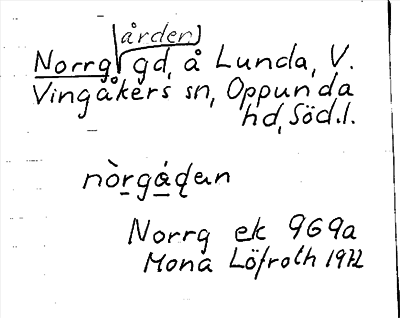 Norrgården gd, å Lunda, V.
Vingåkers sn, Oppunda
hd, Söd.l.
nòrgáḍan
Norrg ek 969a
Mona Löfroth 1972